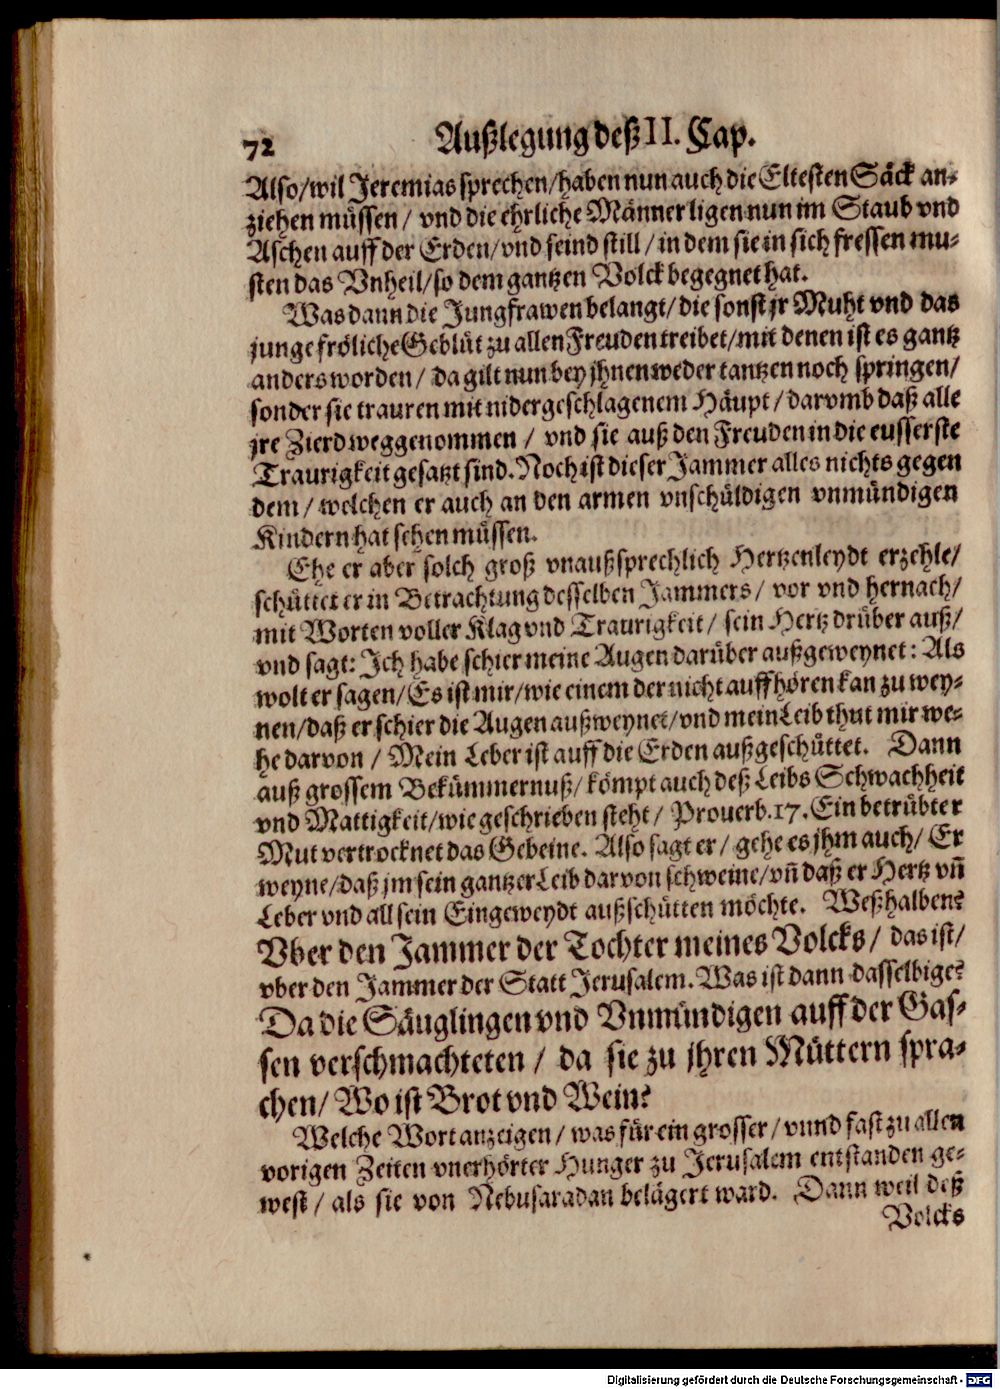 72 Außlegung deß II. Cap.
Also/ wil Jeremias sprechen/ haben nun auch die Eltesten Säck an-
ziehen müssen/ vnd die ehrliche Männer ligen nun im Staub vnd
Aschen auff der Erden/ vnd seind still/ in dem sie in sich fressen mu-
sten das Vnheil/ so dem gantzen Volck begegnet hat.
Was dann die Jungfrawen belangt/ die sonst jr Muht vnd das
junge fröliche Geblüt zu allen Freuden treibet/ mit denen ist es gantz
anders worden/ da gilt nun bey jhnen weder tantzen noch springen/
sonder sie trauren mit nidergeschlagenem Häupt/ darvmb daß alle
jre Zierd weggenommen/ vnd sie auß den Freuden in die eusserste
Traurigkeit gesatzt sind. Noch ist dieser Jammer alles nichts gegen
dem/ welchen er auch an den armen vnschüldigen vnmündigen
Kindern hat sehen müssen.
Ehe er aber solch groß vnaußsprechlich Hertzenleydt erzehle/
schüttet er in Betrachtung desselben Jammers/ vor vnd hernach/
mit Worten voller Klag vnd Traurigkeit/ sein Hertz drüber auß/
vnd sagt: Ich habe schier meine Augen darüber außgeweynet: Als
wolt er sagen/ Es ist mir/ wie einem der nicht auffhören kan zu wey-
nen/ daß er schier die Augen außweynet/ vnd mein Leib thut mir we-
he darvon/ Mein Leber ist auff die Erden außgeschüttet. Dann
auß grossem Bekümmernuß/ kömpt auch deß Leibs Schwachheit
vnd Mattigkeit/ wie geschrieben steht/ Prouerb. 17. Ein betrübter
Mut vertrocknet das Gebeine. Also sagt er/ gehe es jhm auch/ Er
weyne/ daß jm sein gantzer Leib darvon schweine/ vñ daß er Hertz vñ
Leber vnd all sein Eingeweydt außschütten möchte. Weßhalben?
Vber den Jammer der Tochter meines Volcks/ das ist/
vber den Jammer der Statt Jerusalem. Was ist dann dasselbige?
Da die Säuglingen vnd Vnmündigen auff der Gas-
sen verschmachteten/ da sie zu jhren Müttern spra-
chen/ Wo ist Brot vnd Wein?
Welche Wort anzeigen/ was für ein grosser/ vnnd fast zu allen
vorigen Zeiten vnerhörter Hunger zu Jerusalem entstanden ge-
west/ als sie von Nebusaradan belägert ward. Dann weil deß
Volcks
Digitalisierung gefördert durch die Deutsche Forschungsgemeinschaft - DFG